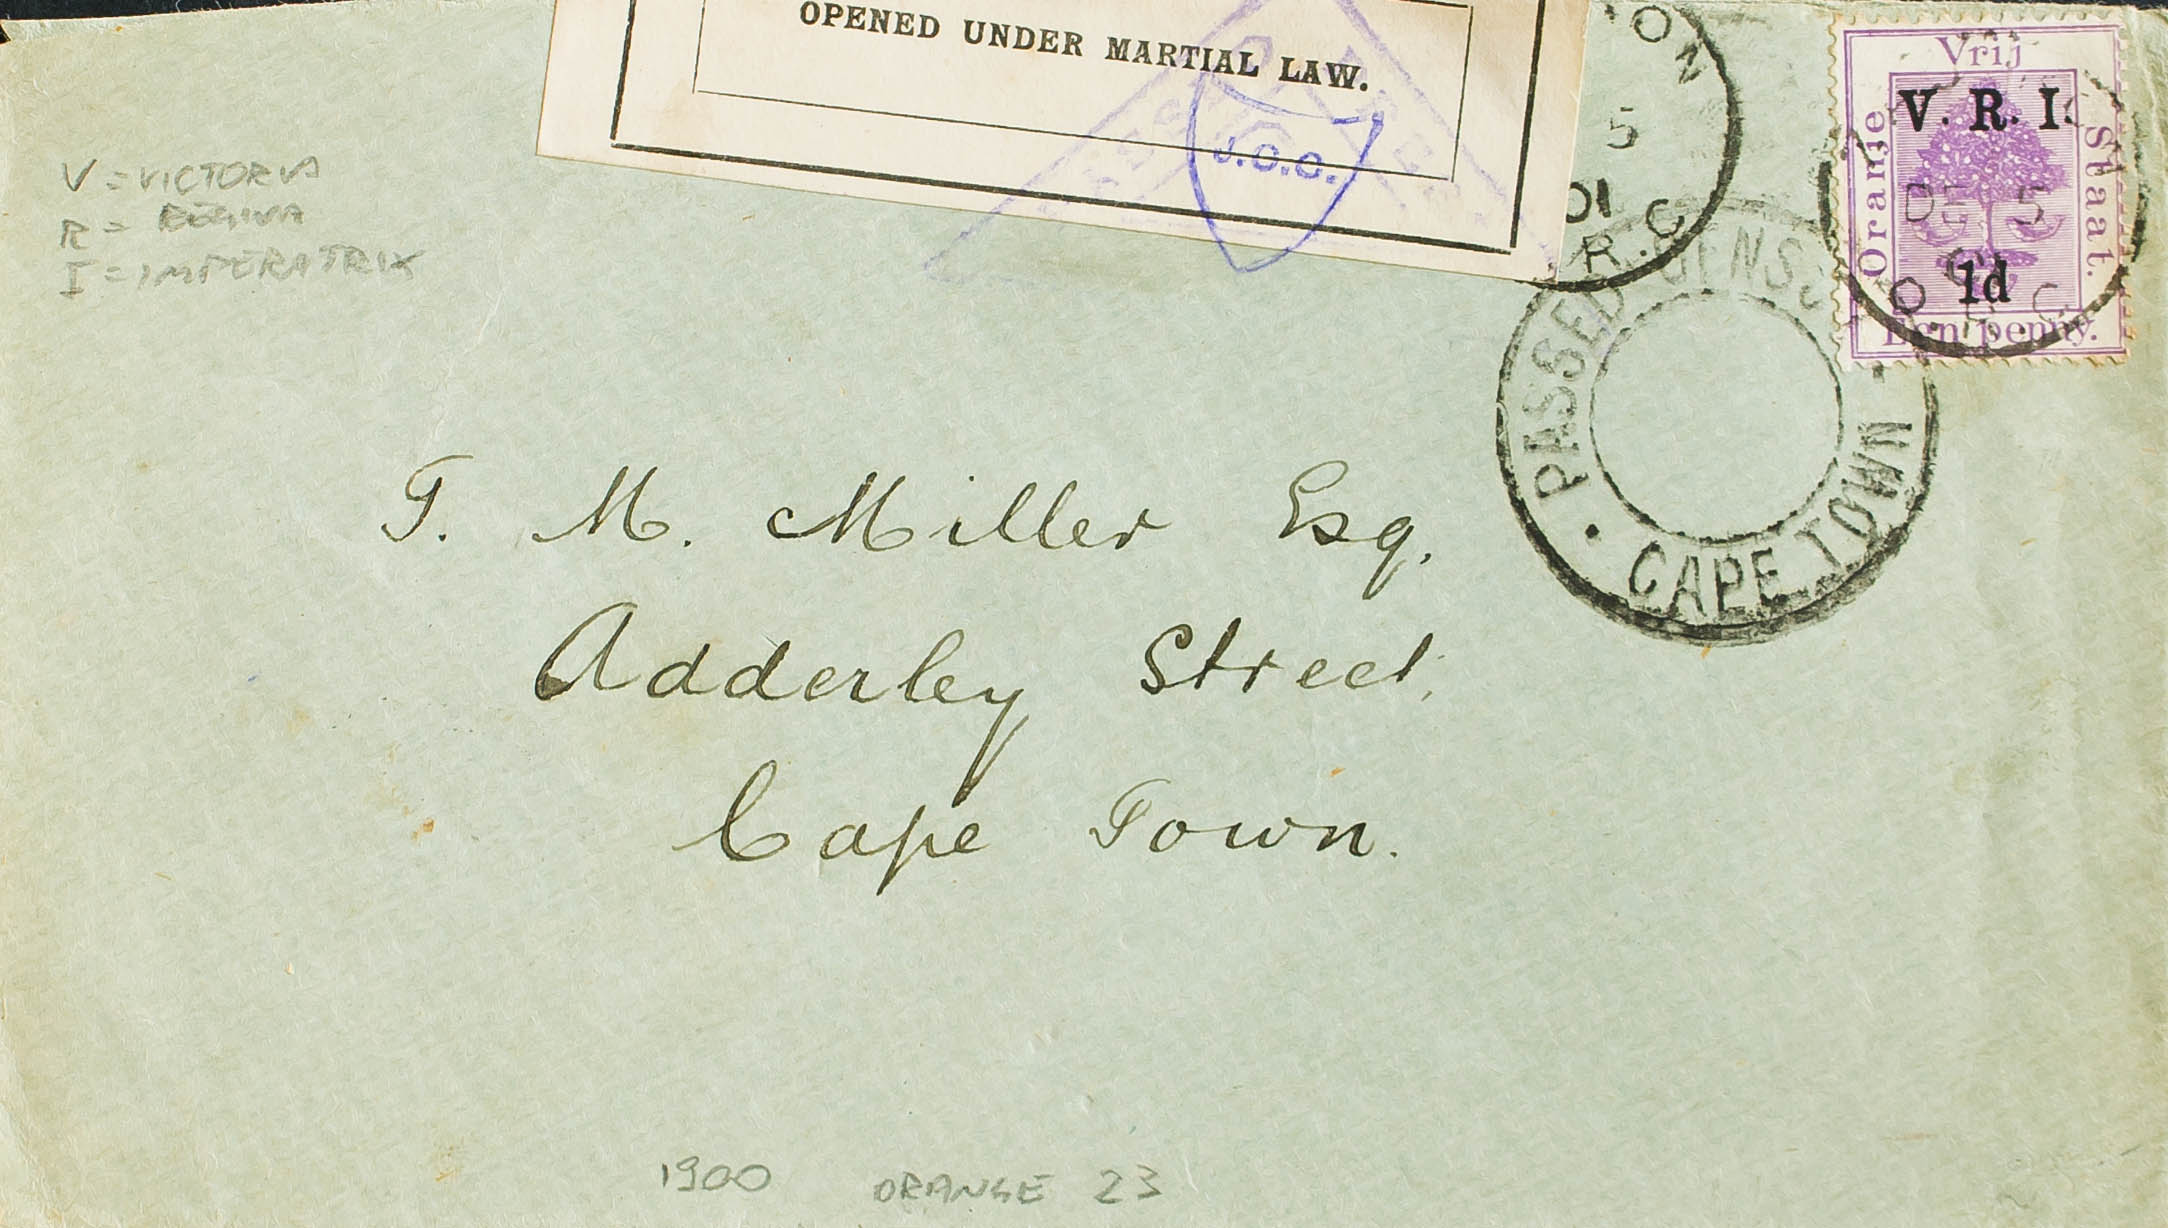 OPENED UNDER MARTIAL LAW.
J.O.O.
ON
5
01
R.C
Vrij
Oranje
Staat.
V. R. I.
DE 5
1d
Een penny.
PASSED CENSO
CAPE TOWN
V = VICTORIA
R = REGINA
I = IMPERATRIX
T. M. Miller Esq.
Adderley Street,
Cape Town.
1900 ORANGE 23